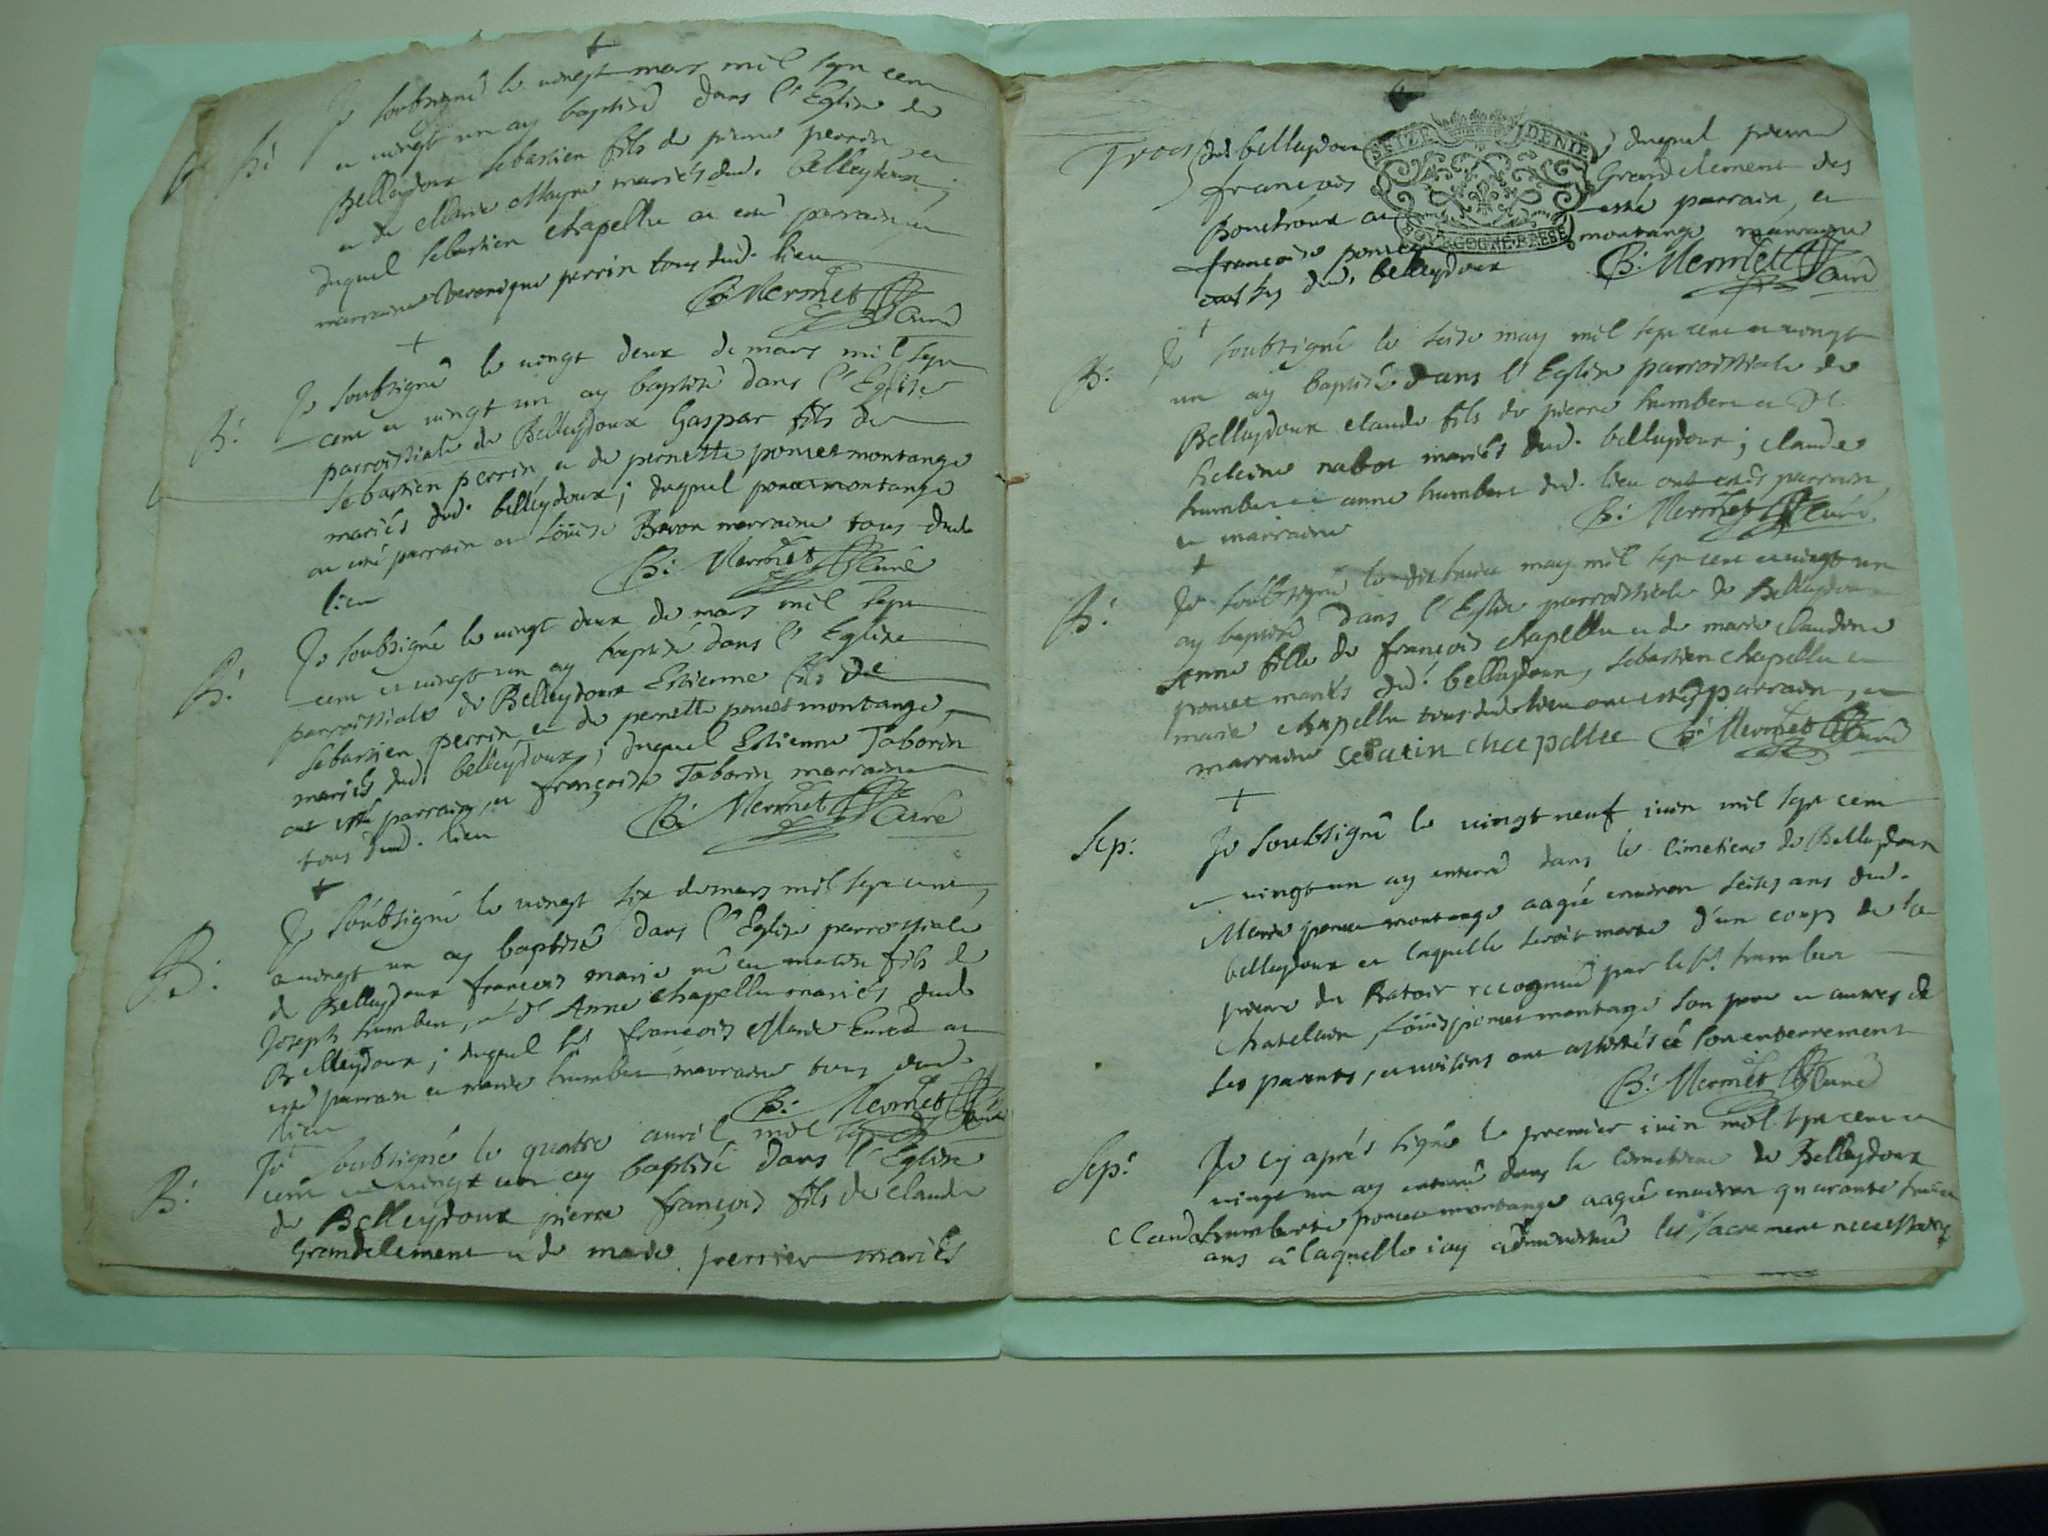 Je soubsigné le vingt mars mil sept cent
B: et vingt un ay baptisé dans l'Eglise de
Belleydoux Sebastien fils de pierre perrin
et de Marie Mayne mariés dud. belleydoux;
duquel Sebastien chapellu a esté parrain et
marraine Veronique perrin tous dud. lieu
B: Mermet Curé
Je soubsigné le vingt deux de mars mil sept
B: cent et vingt un ay baptisé dans l'Eglise
parroissiale de Belleydoux Gaspar fils de
Sebastien perrin et de pernette poncet montange
mariés dud. belleydoux; duquel poncet montange
a esté parrain et Loüise Bavou marraine tous dud.
lieu
B: Mermet Curé
Je soubsigné le vingt deux de mars mil sept
B: cent et vingt un ay baptisé dans l'Eglise
parroissiale de Belleydoux Estienne fils de
Sebastien perrin et de pernette poncet montange
mariés dud. belleydoux; duquel Estienne Taborin
a esté parrain, et françoise Taborin marraine
tous dud. lieu
B: Mermet Curé
Je soubsigné le vingt six de mars mil sept cent
B: et vingt un ay baptisé dans l'Eglise parroissiale
de Belleydoux françois marie né ce matin fils de
Joseph humbert, et d'Anne chapellu mariés dud.
Belleydoux; duquel françois Marie a
esté parrain et marie humbert marraine tous dud.
lieu
B: Mermet Curé
Je soubsigné le quatre avril mil sept
B: cent et vingt un ay baptisé dans l'Eglise
de Belleydoux pierre françois fils de claude
Grandclement et de marie perrier mariés
Trois dud belleydoux; duquel pierre
SEIZE DENIE
BOURGOGNE BRESSE
françois Grandclement des
Bouchoux a esté parrain, et
françoise poncet montange marraine
dud. belleydoux B: Mermet Curé
Je soubsigné le seise may mil sept cent et vingt
B: un ay baptisé dans l'Eglise parroissiale de
Belleydoux claude fils de pierre humbert et de
heleine nabot mariés dud. belleydoux; claude
humbert et anne humbert dud. lieu ont estés parrain
et marraine
B: Mermet Curé
Je soubsigné le dix huict may mil sept cent et vingt un
B: ay baptisé dans l'Eglise parroissiale de Belleydoux
Anne fille de françois chapellu et de marie claudine
poncet mariés dud. belleydoux, Sebastien chapellu et
marie chapellu tous dud. lieu ont estés parrain, et
marraine sebatin chapellu B: Mermet Curé
Sep: Je soubsigné le vingt neuf iuin mil sept cent
et vingt un ay enterré dans le cimetiere de Belleydoux
Marie poncet montange aagée environ seises ans dud.
belleydoux et laquelle seroit morte d'un coup de la
pierre du Batoir recognue par le Sr. humbert
chatelain, Loüis poncet montange son pere et autres de
ses parents, et voisins ont assistés à son enterrement
B: Mermet Curé
Sep: Je cy aprés signé le premier iuin mil sept cent et
vingt un ay enterré dans le cimetiere de Belleydoux
Claudа humberte poncet montange aagée environ quarante huict
ans à laquelle i'ay administré les sacrement necessaires